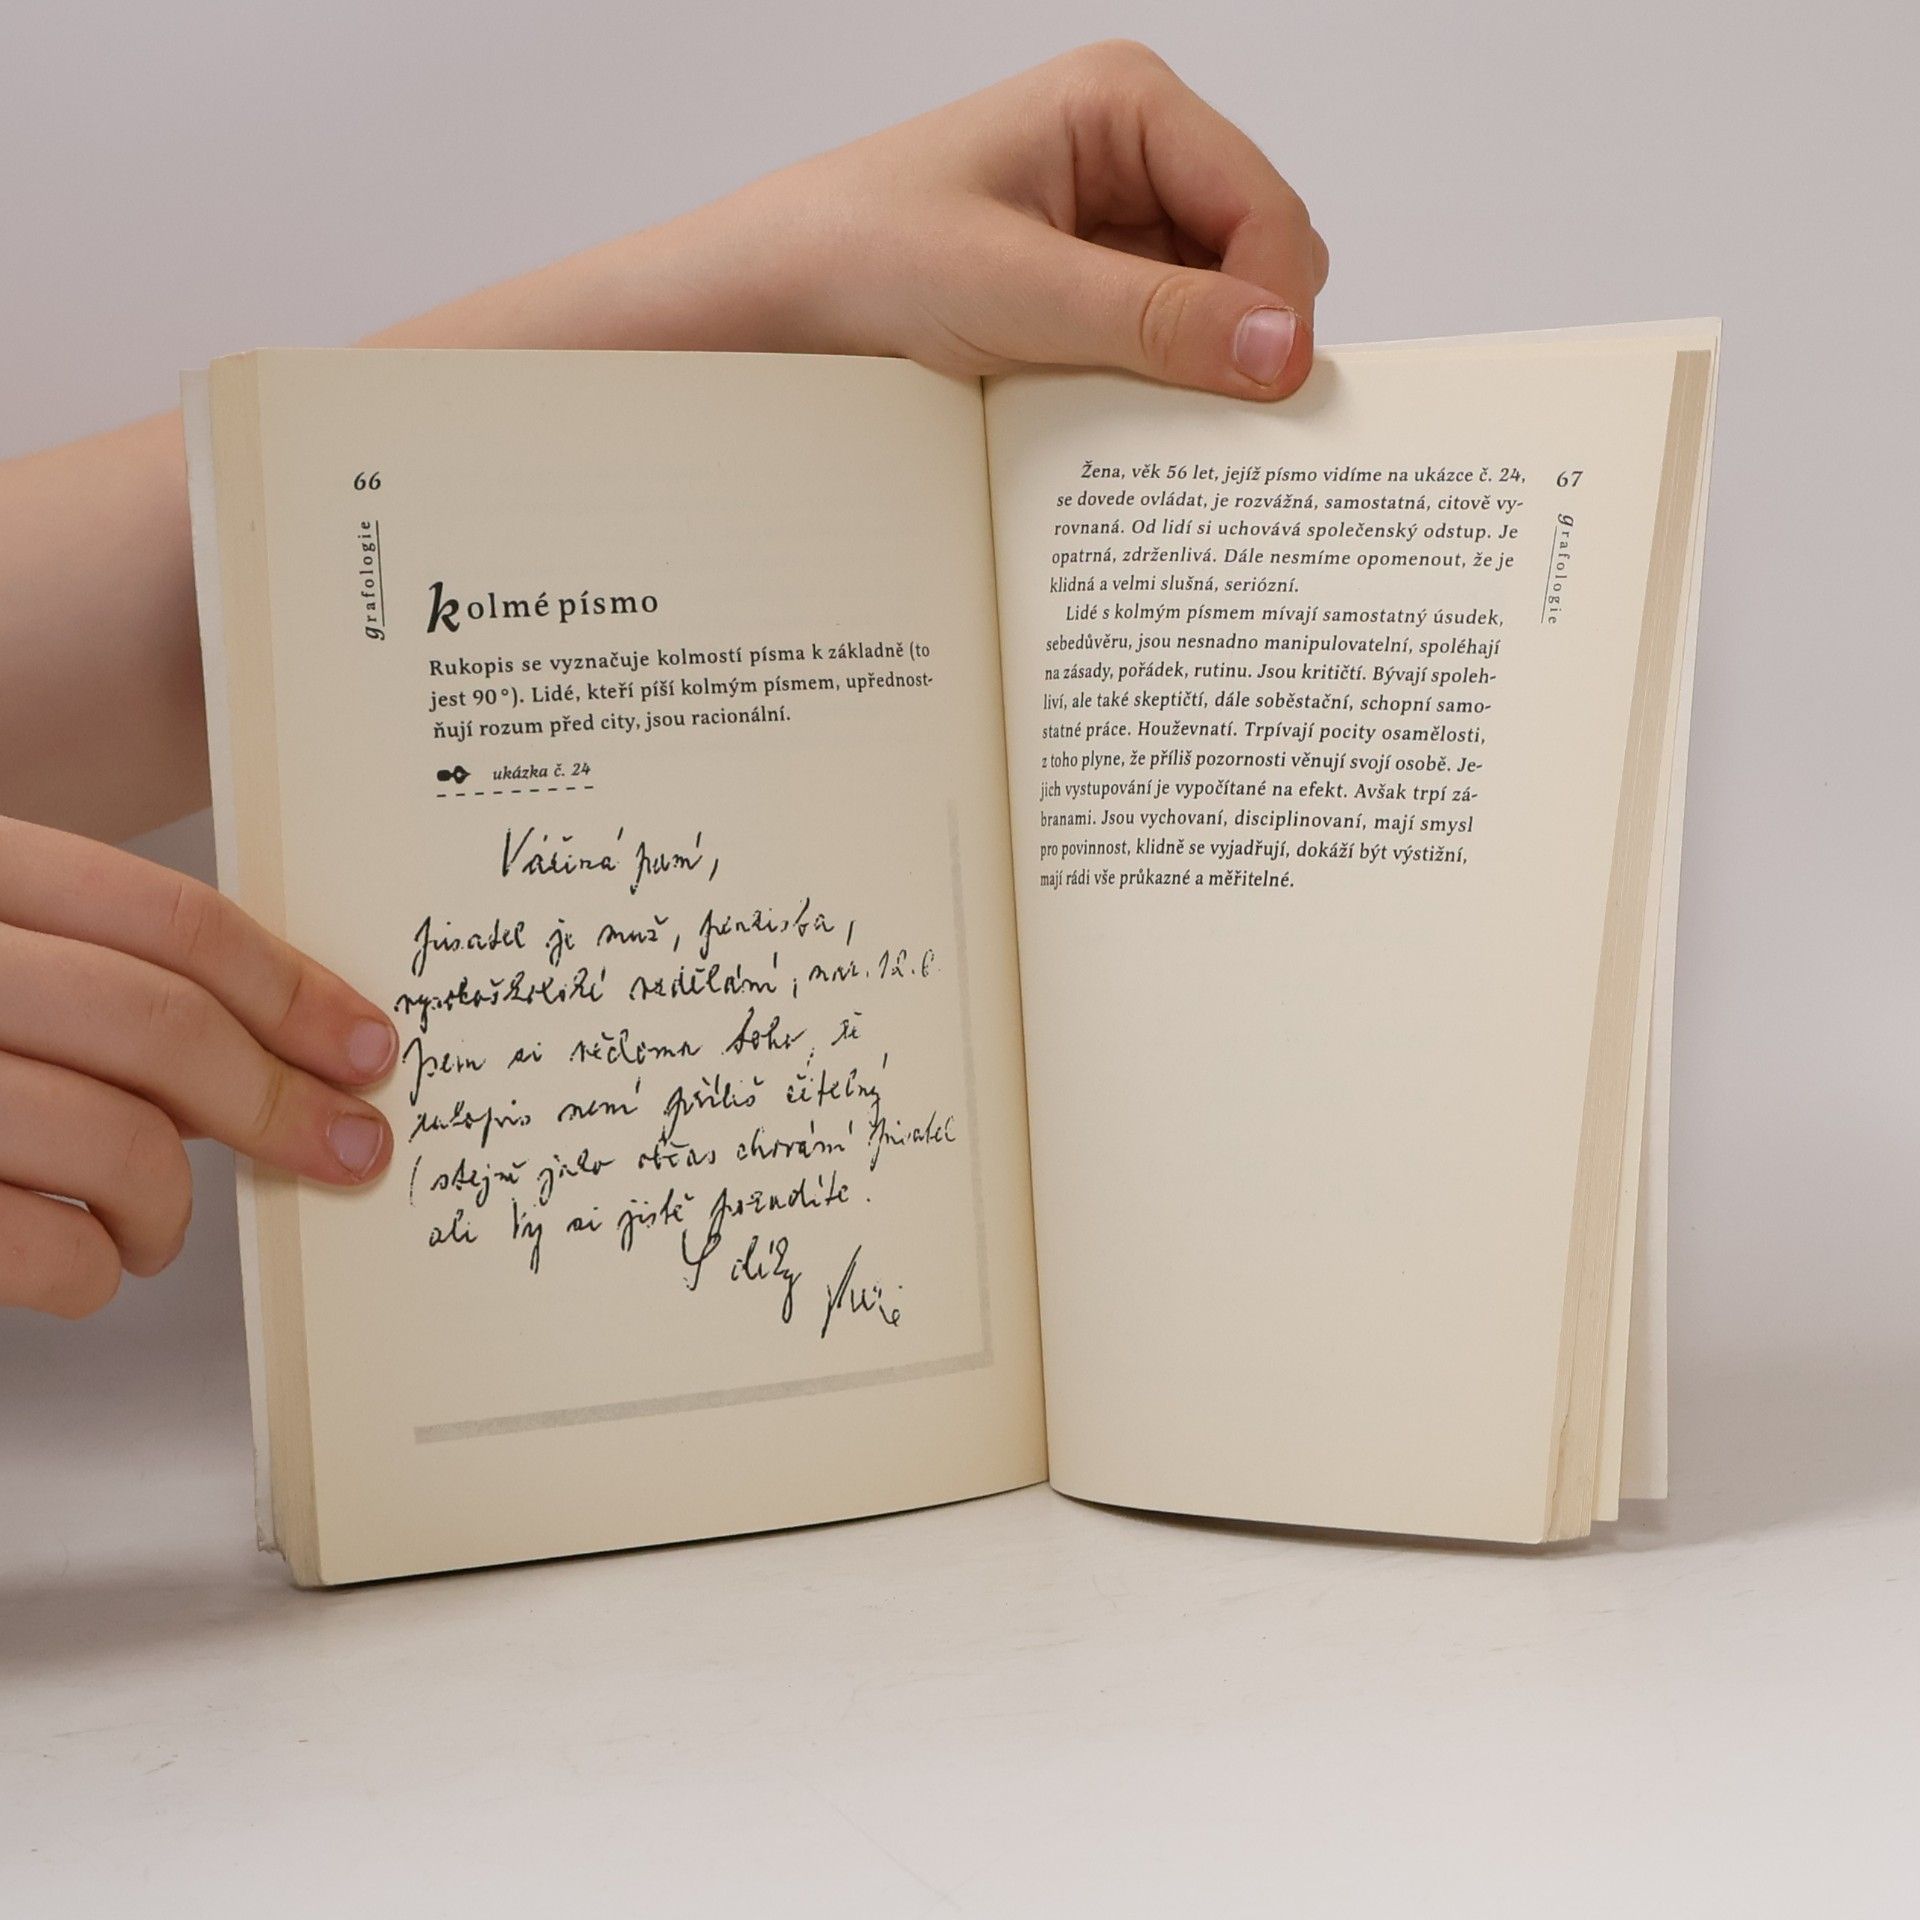 66
grafologie
kolmé písmo
Rukopis se vyznačuje kolmostí písma k základně (to
jest 90°). Lidé, kteří píší kolmým písmem, upřednost-
ňují rozum před city, jsou racionální.
ukázka č. 24
Vážená paní,
pisatel je muž, penzista,
vysokoškolské vzdělání, nar. 12. 6.
Jsem si vědoma toho, že
rukopis není příliš čitelný
(stejně jako občas chování pisatel
ale Vy si jistě poradíte.
S díky
Žena, věk 56 let, jejíž písmo vidíme na ukázce č. 24,
se dovede ovládat, je rozvážná, samostatná, citově vy-
rovnaná. Od lidí si uchovává společenský odstup. Je
opatrná, zdrženlivá. Dále nesmíme opomenout, že je
klidná a velmi slušná, seriózní.
Lidé s kolmým písmem mívají samostatný úsudek,
sebedůvěru, jsou nesnadno manipulovatelní, spoléhají
na zásady, pořádek, rutinu. Jsou kritičtí. Bývají spoleh-
liví, ale také skeptičtí, dále soběstační, schopní samo-
statné práce. Houževnatí. Trpívají pocity osamělosti,
z toho plyne, že příliš pozornosti věnují svojí osobě. Je-
jich vystupování je vypočítané na efekt. Avšak trpí zá-
branami. Jsou vychovaní, disciplinovaní, mají smysl
pro povinnost, klidně se vyjadřují, dokáží být výstižní,
mají rádi vše průkazné a měřitelné.
67
grafologie